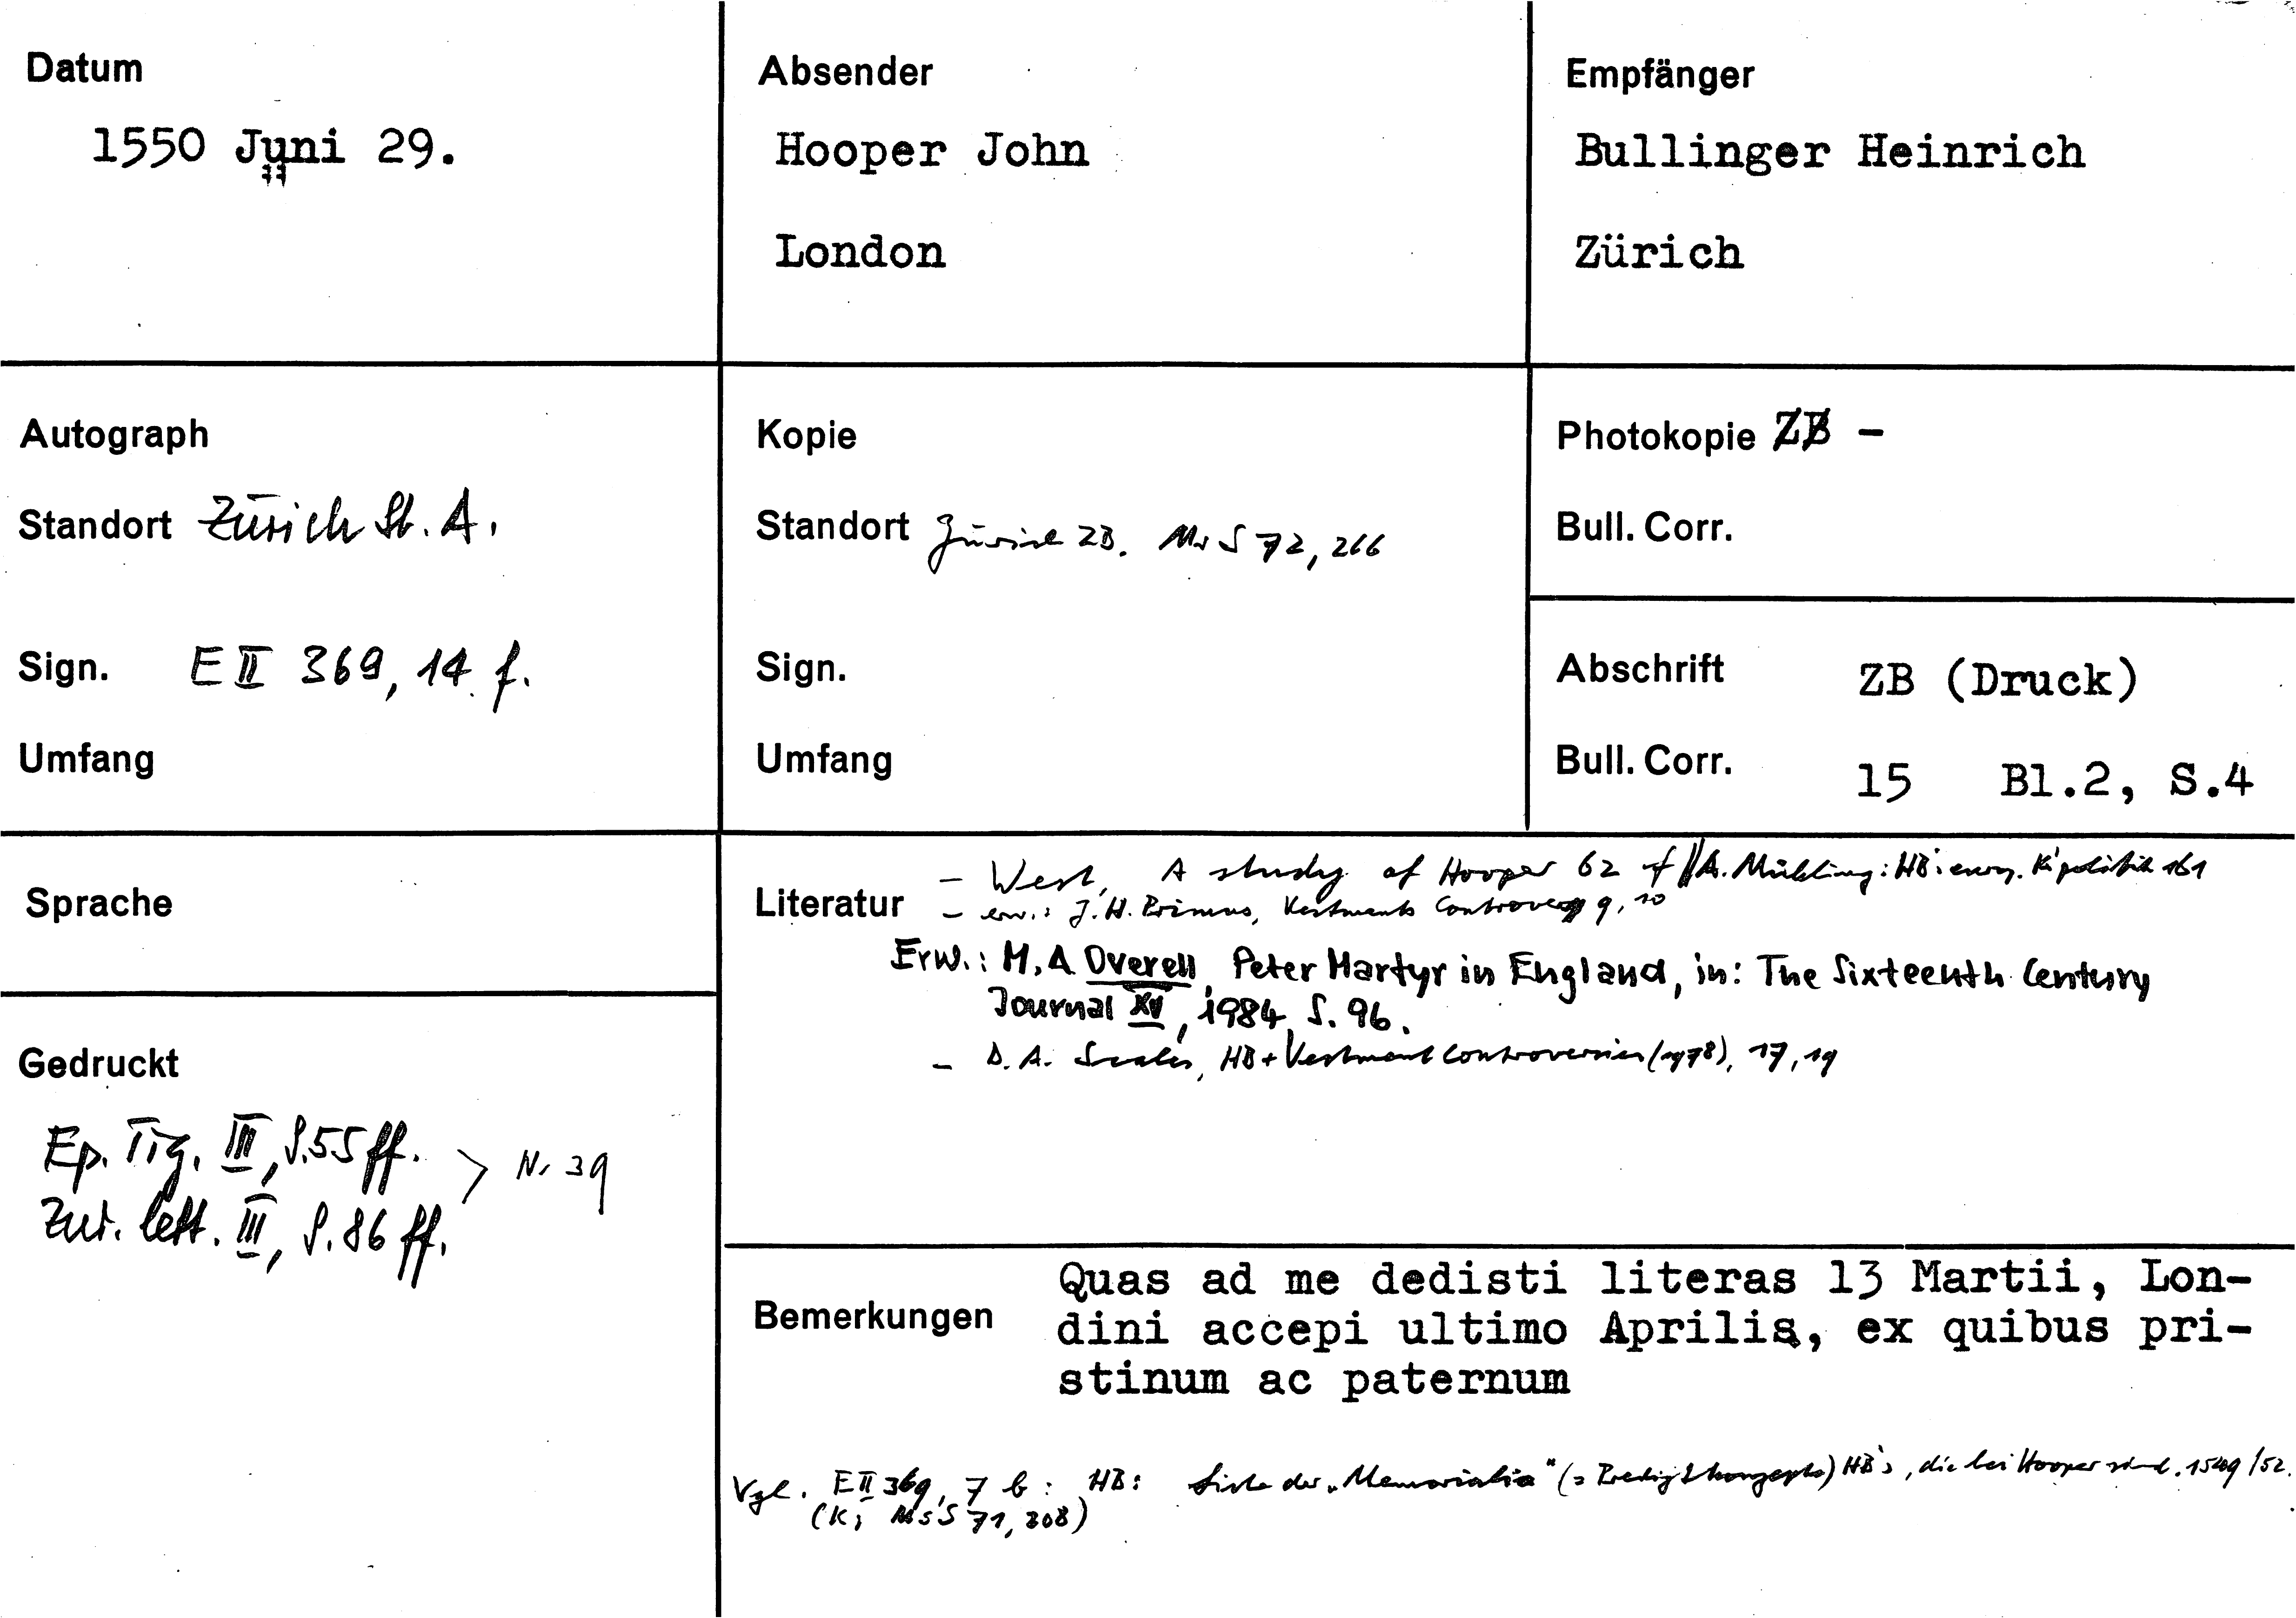 Datum
1550 Juni 29.
Absender
Hooper John
London
Empfänger
Bullinger Heinrich
Zürich
Autograph
Standort Zürich St. A.
Sign. E II 369, 14 f.
Umfang
Kopie
Standort Zürich ZB. Ms S 72, 266
Sign.
Umfang
Photokopie ZB -
Bull. Corr.
Abschrift ZB (Druck)
Bull. Corr. 15 Bl.2, S.4
Sprache
Gedruckt
Ep. Tig. III, S.55 ff. > Nr 39
Zur. lett. III, S. 86 ff.
Literatur
- West, A study of Hooper 62 f // A. Mühling: HB: europ. K'politik 161
- erw.: J. H. Primus, Vestments Controversy 9, 10
Erw.: M. A Overell, Peter Martyr in England, in: The Sixteenth Century
Journal XV, 1984, S. 96.
- D. A. Scales, HB + Vestment Controversies (1978), 17, 19
Bemerkungen
Quas ad me dedisti literas 13 Martii, Lon-
dini accepi ultimo Aprilis, ex quibus pri-
stinum ac paternum
Vgl. E II 369, 7 b: HB: Liste der „Memorialia" (= Predigtkonzepte) HB's, die bei Hooper sind. 1549/52.
(K; Ms S 71, 308)